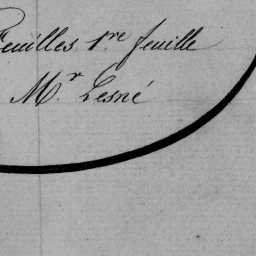 feuilles. 1.re feuille
Mr. Lesné